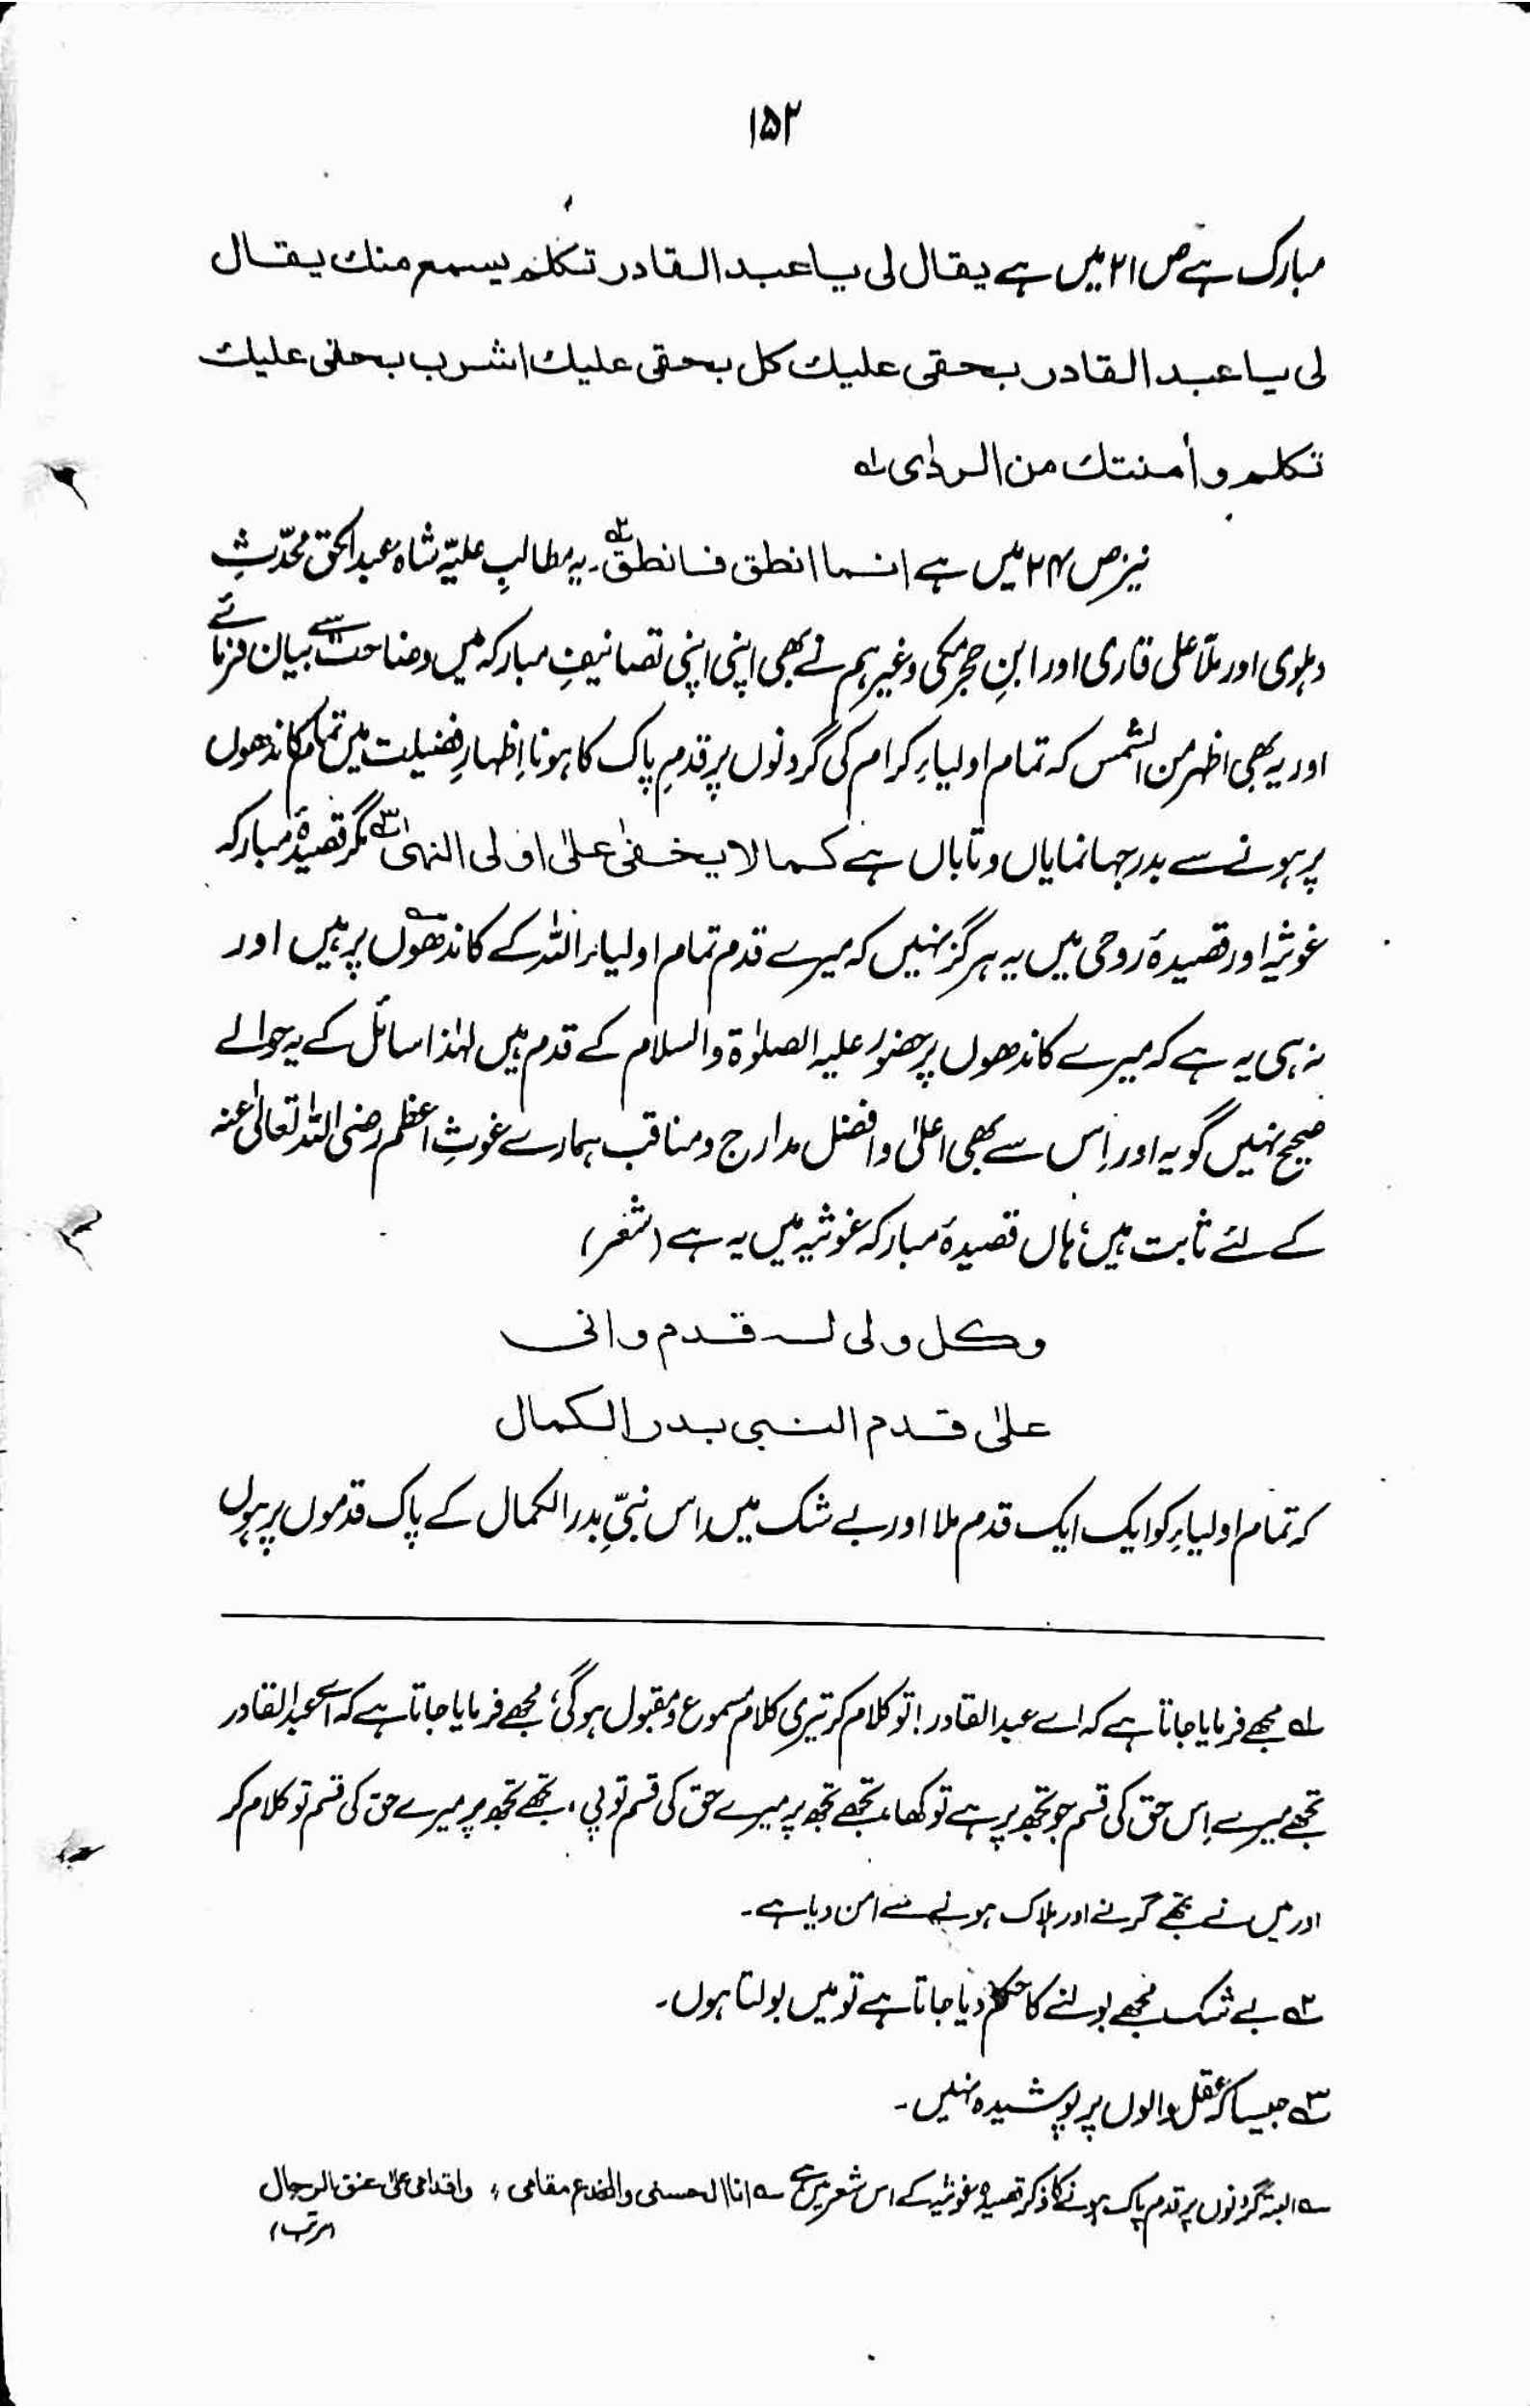 ۱۵۲
مبارک ہے ص ۲۱ میں ہے یقال لی یا عبد القادر تکلم یسمع منك یقال
لی یا عبد القادر بحقی علیك کل بحقی علیك اشرب بحقی علیك
تکلم و اٰمنتك من الردٰی ؎۱
نیز ص ۲۴ میں ہے انما انطق فانطق ؎۲۔ یہ مطالبِ علیّہ شاہ عبدالحق محدّثِ
دہلوی اور ملّا علی قاری اور ابنِ حجر مکی وغیرہم نے بھی اپنی اپنی تصانیفِ مبارکہ میں وضاحت سے بیان فرمائے
اور یہ بھی اظہر من الشمس کہ تمام اولیاءِ کرام کی گردنوں پر قدمِ پاک کا ہونا اِظہارِ فضیلت میں تمام کاندھوں
پر ہونے سے بدرجہا نمایاں و تاباں ہے کما لا یخفٰی علٰی اولی النہٰی ؎۳ مگر قصیدۂ مبارکہ
غوثیہ اور قصیدۂ روحی میں یہ ہرگز نہیں کہ میرے قدم تمام اولیاء اللہ کے کاندھوں ؎ پر ہیں اور
نہ ہی یہ ہے کہ میرے کاندھوں پر حضور علیہ الصلوٰۃ والسلام کے قدم ہیں لہٰذا سائل کے یہ حوالے
صحیح نہیں گو یہ اور اِس سے بھی اعلیٰ و افضل مدارج و مناقب ہمارے غوثِ اعظم رضی اللہ تعالیٰ عنہ
کے لئے ثابت ہیں؛ ہاں قصیدۂ مبارکہ غوثیہ میں یہ ہے (شعر)
وکل ولی لہ قدم وانی
علٰی قدم النبی بدر الکمال
کہ تمام اولیاءِ کو ایک ایک قدم ملا اور بے شک میں اِس نبیّ بدر الکمال کے پاک قدموں پر ہوں
؎۱ مجھے فرمایا جاتا ہے کہ اے عبدالقادر! تو کلام کر تیری کلام مسموع و مقبول ہو گی؛ مجھے فرمایا جاتا ہے کہ اے عبدالقادر
تجھے میرے اِس حق کی قسم جو تجھ پر ہے تو کھا، تجھے تجھ پر میرے حق کی قسم تو پی، تجھے تجھ پر میرے حق کی قسم تو کلام کر
اور میں نے تجھے گرنے اور ہلاک ہونے سے امن دیا ہے۔
؎۲ بے شک مجھے بولنے کا حکم دیا جاتا ہے تو میں بولتا ہوں۔
؎۳ جیسا کہ عقل والوں پر پوشیدہ نہیں۔
؎ البتہ گردنوں پر قدم پاک ہونے کا ذکر قصیدہ غوثیہ کے اس شعر میں ہے ؎ انا الحسنی والمخدع مقامی ؛ واقدامی علٰی عنق الرجال
(مرتب)